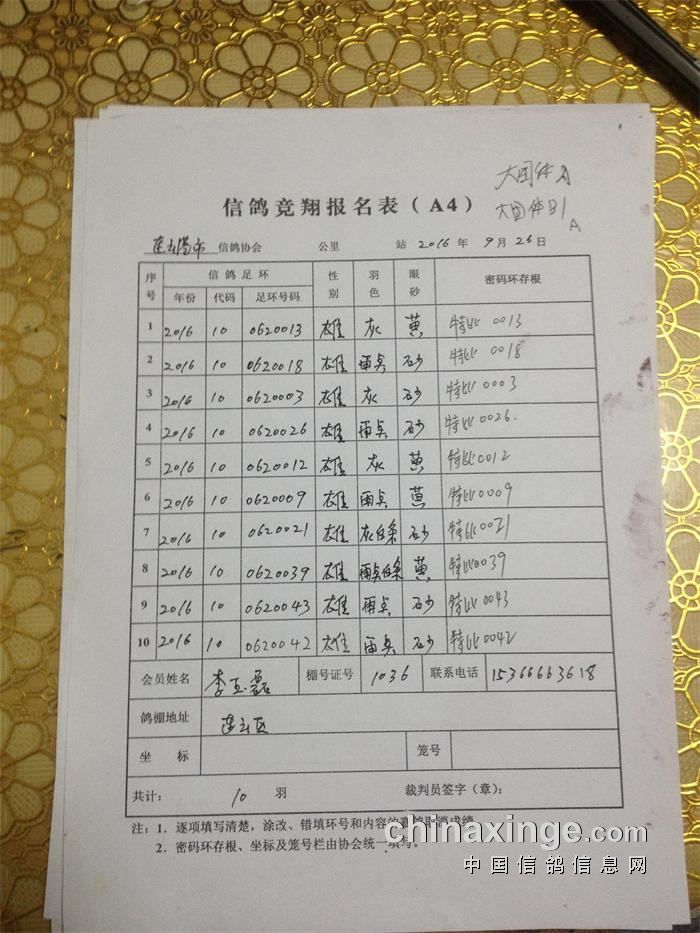 大团体A
大团体B1
A
信鸽竞翔报名表（A4）
连云港市 信鸽协会 公里 站 2016年 9月26日
序号 信鸽足环 性别 羽色 眼砂 密码环存根
年份 代码 足环号码
1 2016 10 0620013 雄 灰 黄 特比 0013
2 2016 10 0620018 雄 雨点 砂 特比 0018
3 2016 10 0620003 雄 灰 砂 特比0003
4 2016 10 0620026 雄 雨点 砂 特比0026.
5 2016 10 0620012 雄 灰 黄 特比0012
6 2016 10 0620009 雄 雨点 黄 特比0009
7 2016 10 0620021 雄 灰白条 砂 特比0021
8 2016 10 0620039 雄 雨点白条 黄 特比0039
9 2016 10 0620043 雄 雨点 砂 特比0043
10 2016 10 0620042 雄 雨点 砂 特比0042
会员姓名 李玉磊 棚号证号 1036 联系电话 15366663618
鸽棚地址 连云区
坐标 笼号
共计： 10 羽 裁判员签字（章）：
注：1．逐项填写清楚，涂改、错填环号和内容的赛鸽取消成绩。
2．密码环存根、坐标及笼号栏由协会统一填写。
chinaxinge.com
中国信鸽信息网